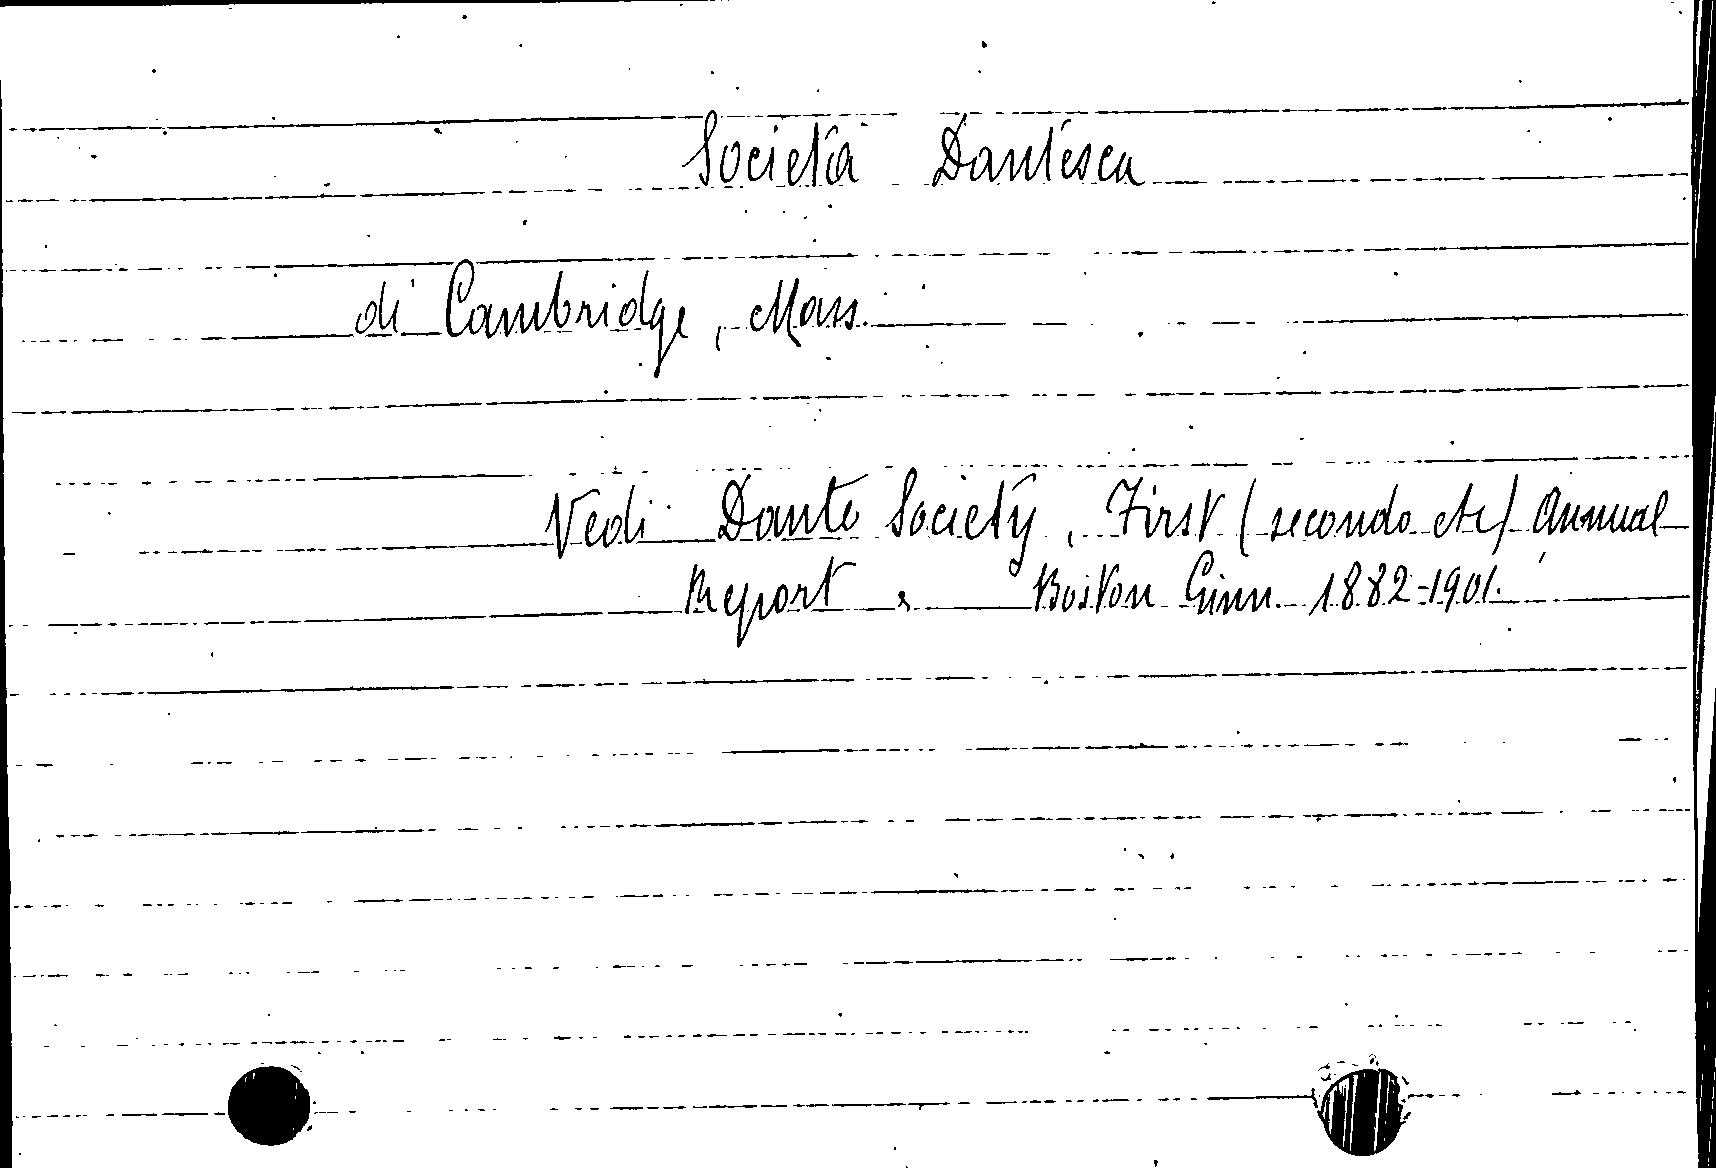 Società Dantesca
di Cambridge, Mass.
Vedi Dante Society, First (secondo etc) Annual
Report, Boston Ginn. 1882-1901.